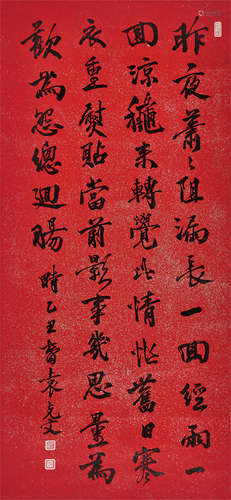 昨夜蕭々但漏長一回經雨一
回涼穐來轉覺此情忙舊日寒
衣重熨貼當前影事幾思量為
歡為怨總迴腸
時乙丑袁克文